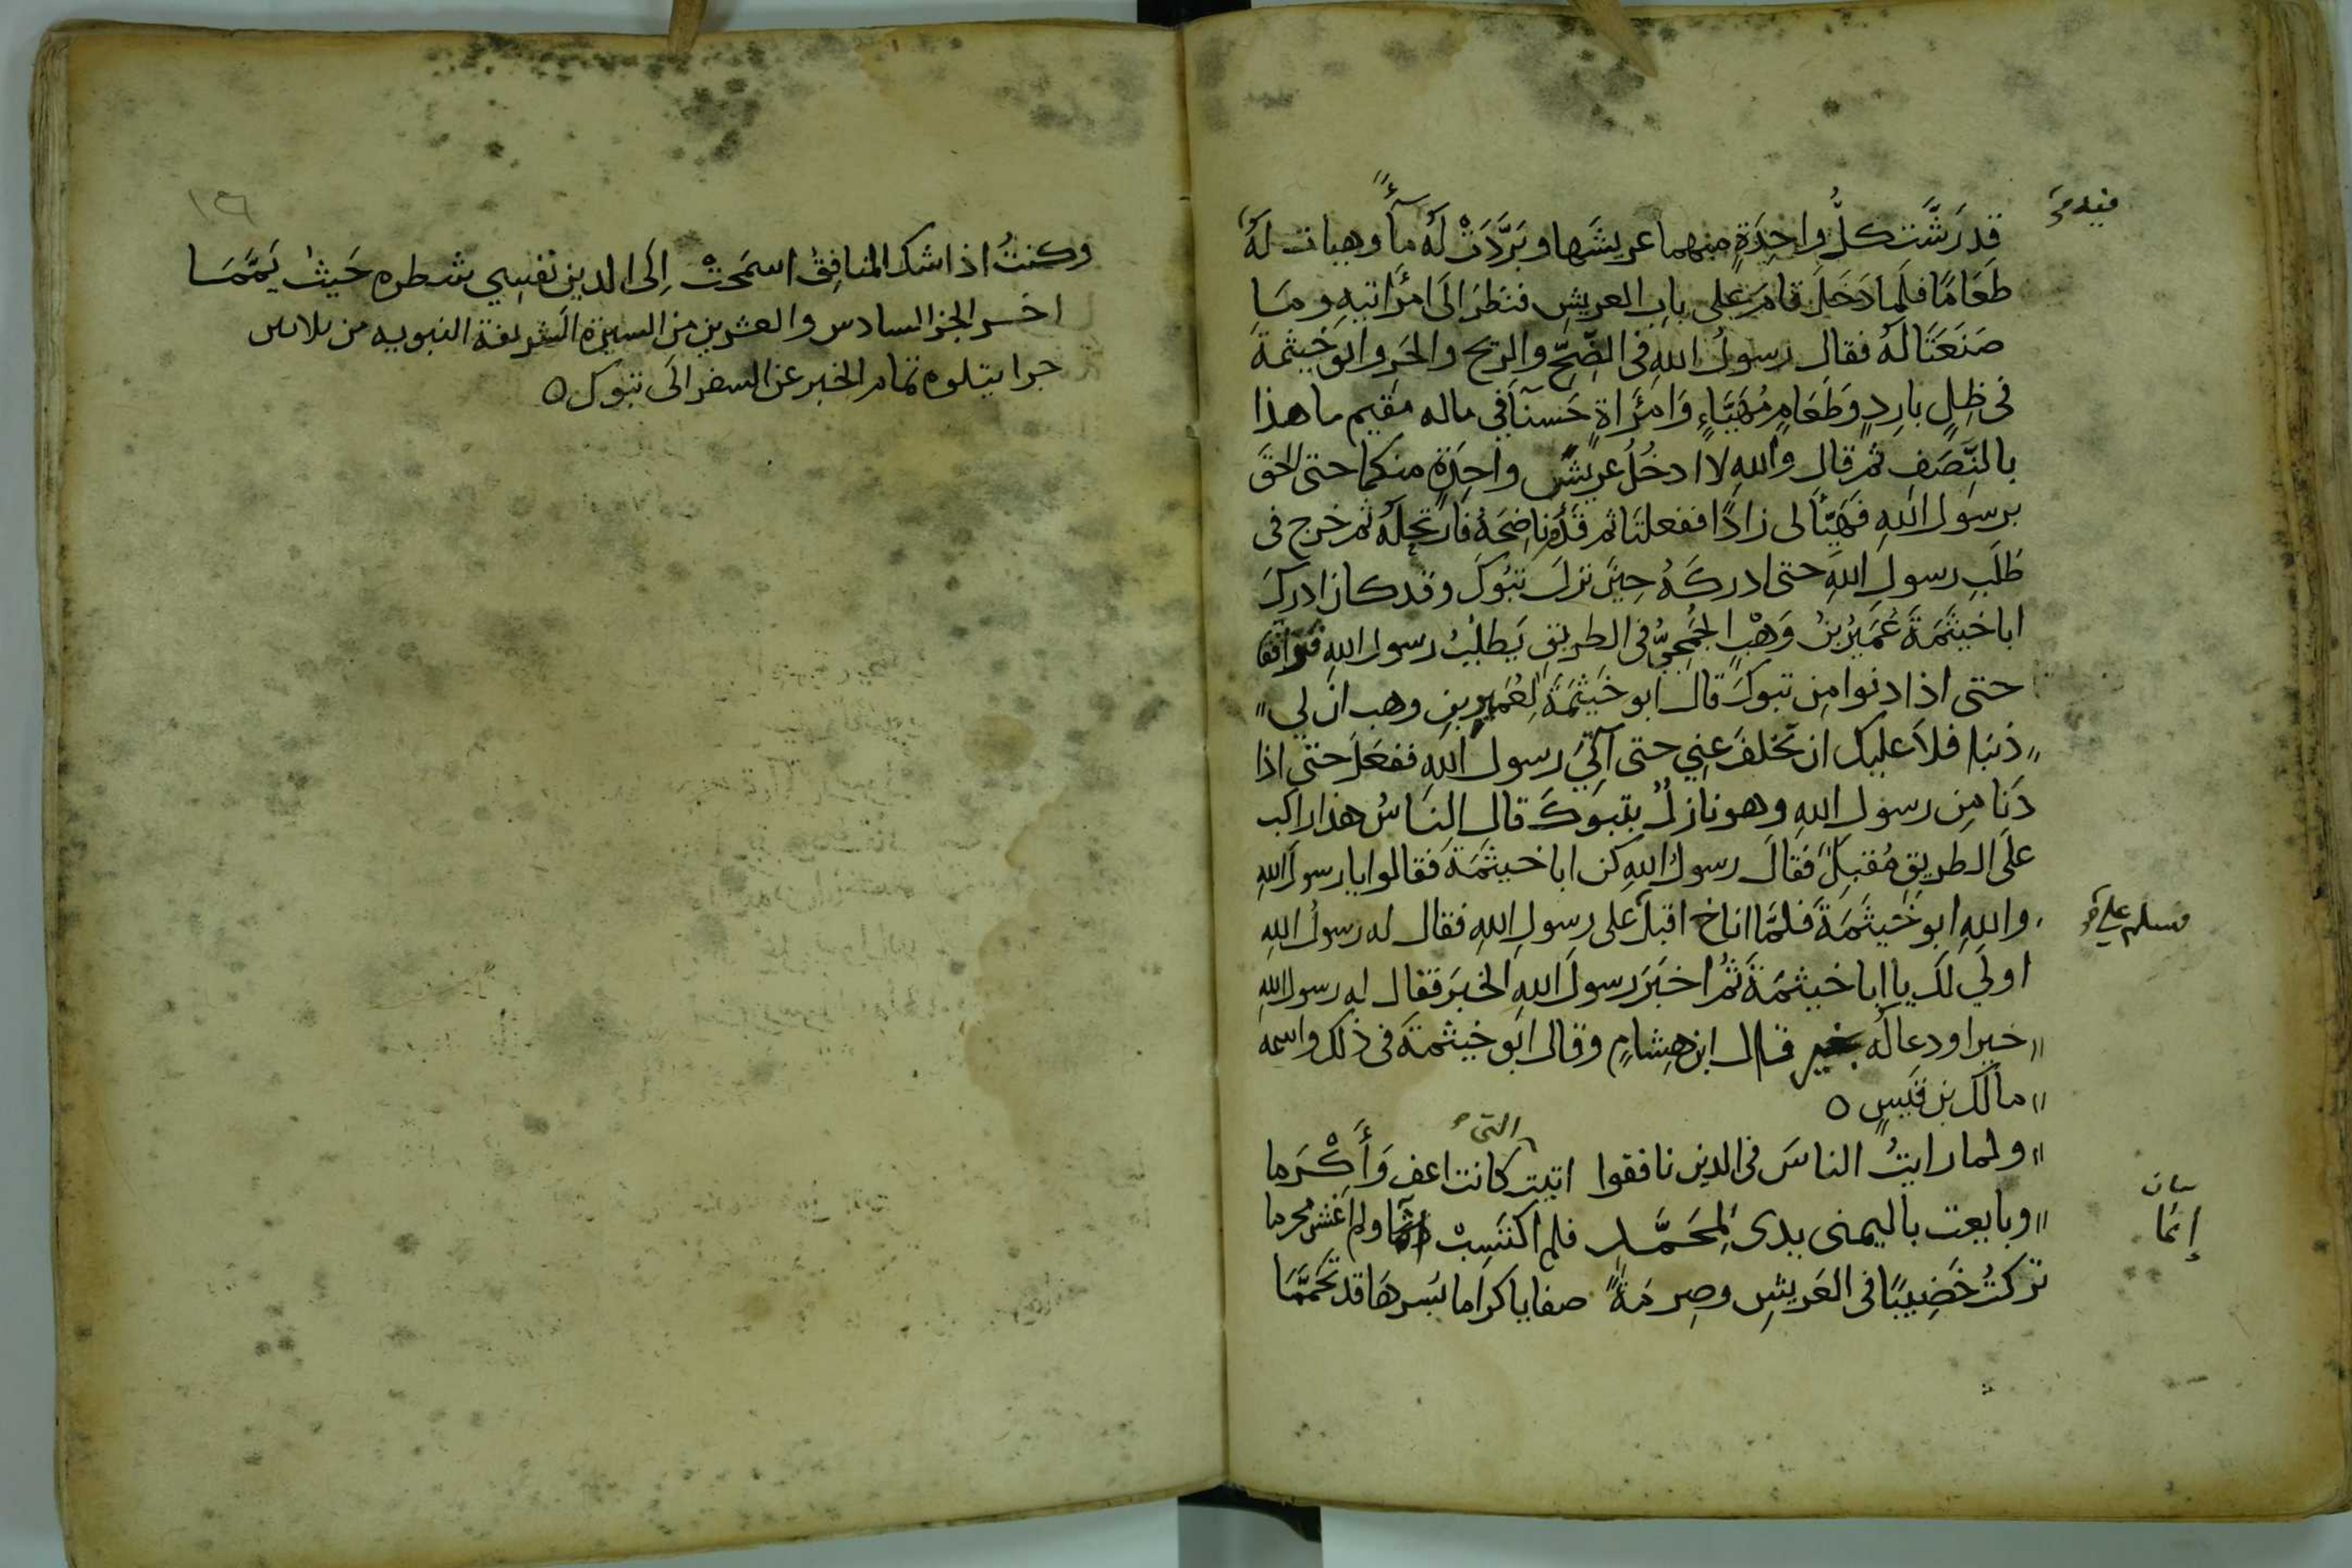 قد رَشَّت كلُّ واحِدَةٍ منهما عريشَها وبَرَّدَتْ لَهُ مآءً وهيات لَهُ
طَعَامًا فلما دَخَلَ قامَ على بابِ العريشِ فنظرَ الَى امرَاتيهِ وما
صَنَعَتَا لَهُ فقال رسولُ اللهِ فى الضِّحِّ والريح والحَرِ وابو خيثمة
فى ظِلٍ بارِدٍ وطَعَامٍ مُهَيَّاءٍ وَامرَاةٍ حَسنآ فى ماله مقيم ما هذا
بالنَّصَفِ ثم قال واللهِ لا ادخُلُ عريشَ واحِدَةٍ منكما حتى الحقَ
برسول اللهِ فَهَيِّأَا لى زادًا ففعلتا ثم قَدَّمَ ناضِحَهُ فارتحله ثم خرج فى
طَلَبِ رسولِ اللهِ حتى ادركَهُ حِينَ نزلَ تبُوكَ وقد كان ادركَ
ابا خيثَمَةَ عُمَيرُ بنُ وَهْبٍ الجُمَحِيُّ فى الطريقِ يَطلُبُ رسول اللهِ فترافقا
حتى اذا دنوا مِن تبوكَ قال ابو خَيثَمَةَ لِعُمَيرِ بنِ وهب ان لي
ذنبا فلا عليك ان تخلفَ عني حتى آتِيَ رسول اللهِ ففعَلَ حتى اذا
دَنا مِن رسول اللهِ وهو نازلٌ بتبوكَ قال النَاسُ هذا راكب
على الطريقِ مُقبِلٌ فقالَ رسولُ اللهِ كن ابا خيثَمَةَ فقالوا يا رسولَ اللهِ
واللهِ ابو خَيثَمَةَ فلمَّا اناخ اقبلَ على رسولِ اللهِ فقال له رسولُ اللهِ
فسلم علي
اولَى لَكَ يا ابا خيثمَةَ ثُمَّ اخبَرَ رسولَ اللهِ الخبَرَ فقال له رسول اللهِ
خيرا ودعا لَه بخير قال ابن هِشامٍ وقال ابو خيثمةَ فى ذلك واسمه
مالك بن قَيسٍ ٥
ولما رايتُ الناسَ فى الدين نافقوا اتيت التى كانت اعف وَأَكْرَما
وبايعت باليمنى يدى لِمحَمَّدٍ فلم اكتَسِبْ اثما ولم اغشَ محرما
بيان
إثمًا
تركتُ خَضِيبًا فى العَرِيشِ وصِرمَةً صفايا كراما بُسرهَا قد تَحَمَّمَا
وكنتُ اذا شك المنافِقُ اسمَحَتْ اِلَى الدين نفسي شطره حَيثُ يَمَّمَا
اخر الجز السادس والعشرين من السيرة الشريفة النبويه من ثلاثين
جزا يتلوه تمام الخبر عن السفر الَى تبوك ٥